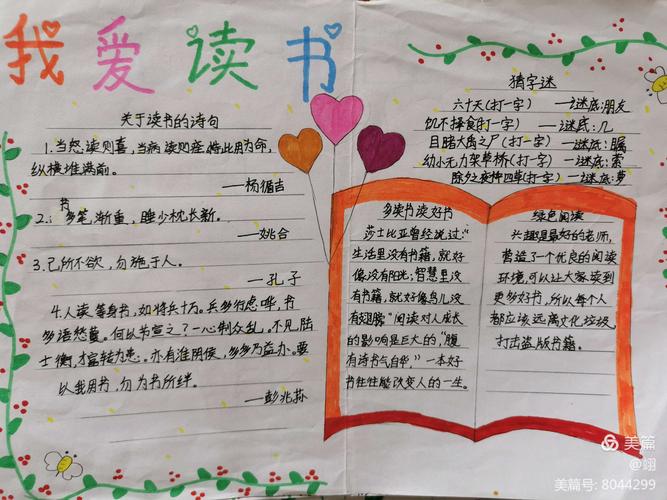 我爱读书
关于读书的诗句
1.当怒读则喜,当病读则痊,恃此用为命,
纵横堆满前。
——杨循吉
2.书多笔渐重,睡少枕长新。
——姚合
3.己所不欲,勿施于人。
——孔子
4.人读等身书,如将兵十万。兵多行虑哗,书
多语愁蔓。何以节宣之?一心制众乱,不见陆
士衡,才富转为患。亦有淮阴侯,多多乃益办。要
以我用书,勿为书所绊。
——彭兆荪
猜字迷
六十天(打一字) ——谜底:朋友
饥不择食(打一字) ——谜底:几
目睹大禹之尸(打一字) ——谜底:瞩
幼小无力架草桥(打一字) ——谜底:索
除夕之夜种四草(打一字) ——谜底:萝
多读书读好书
莎士比亚曾经说过:“
生活里没有书籍,就好
像没有阳光;智慧里没
有书籍,就好像鸟儿没
有翅膀”阅读对人成长
的影响是巨大的“腹
有诗书气自华,”一本好
书往往能改变人的一生。
绿色阅读
兴趣是最好的老师,
营造了个优良的阅读
环境,可以让大家读到
更多好书,所以每个人
都应该远离文化垃圾,
打击盗版书籍。
美篇
@翊
美篇号: 8044299